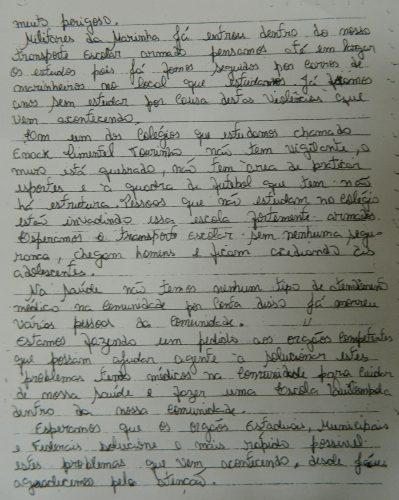 muito perigoso.
Militares da Marinha já entrou dentro do nosso
transporte escolar armado pensamos até em largar
os estudos pois já fomos seguidos por carros de
marinheiros no local que estudamos já ficamos
anos sem estudar por causa destas violências que
vem acontecendo.
Em um dos Colegios que estudamos chamado
Enock Pimentel Tourinho não tem vigilante, o
muro está quebrado, não tem area de praticar
esportes e a quadra de futebol que tem não
há estrutura. Pessoas que não estudam no colégio
estão invadindo essa escola fortemente armados.
Esperamos o transporte escolar sem nenhuma segu-
rança, chegam homens e ficam acediando as
adolescentes.
Na saúde não temos nenhum tipo de atendimento
médico na comunidade por conta disso já morreu
várias pessoas da comunidade.
Estamos fazendo um pedido aos orgãos competentes
que possam ajudar agente a solucionar estes
problemas temos médicos na comunidade para cuidar
de nossa saúde e fazer uma Escola Quilombola
dentro da nossa comunidade.
Esperamos que os orgãos Estaduais, Municipais
e Federais solucione o mais rápido possivel
estes problemas que vem acontecendo, desde já
agradecemos pela atenção.